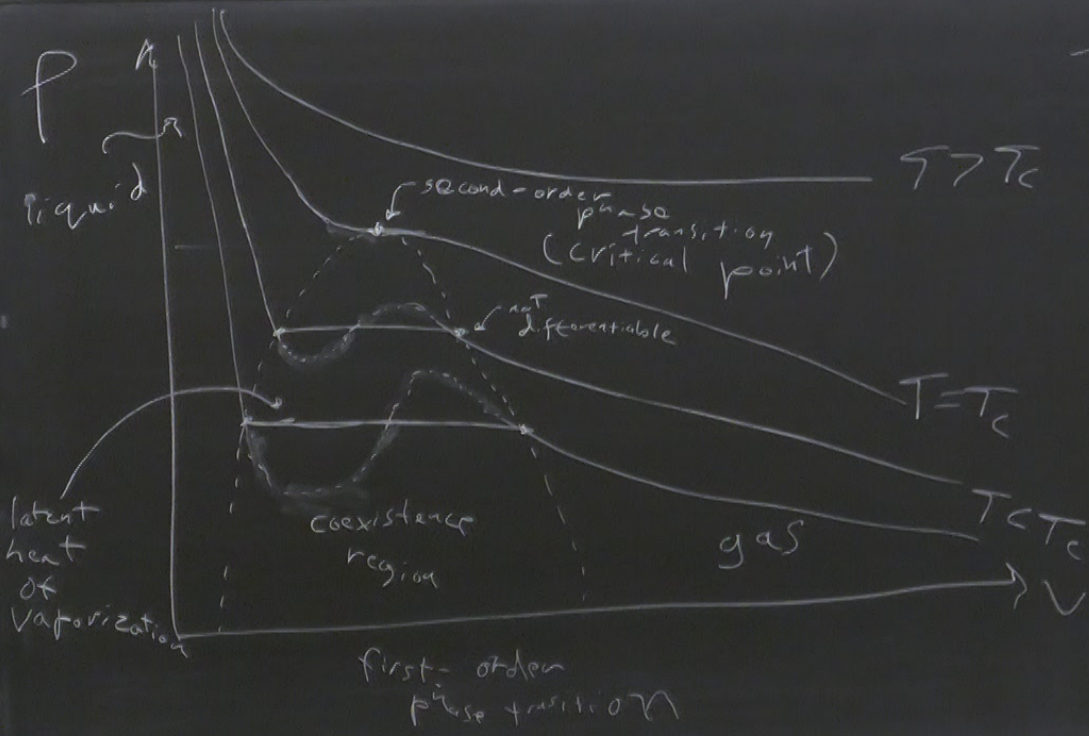 P
liquid
T > Tc
second-order
phase
transition
(critical point)
not
differentiable
T = Tc
latent
heat
of
vaporization
coexistence
region
gas
T < Tc
V
first-order
phase transition